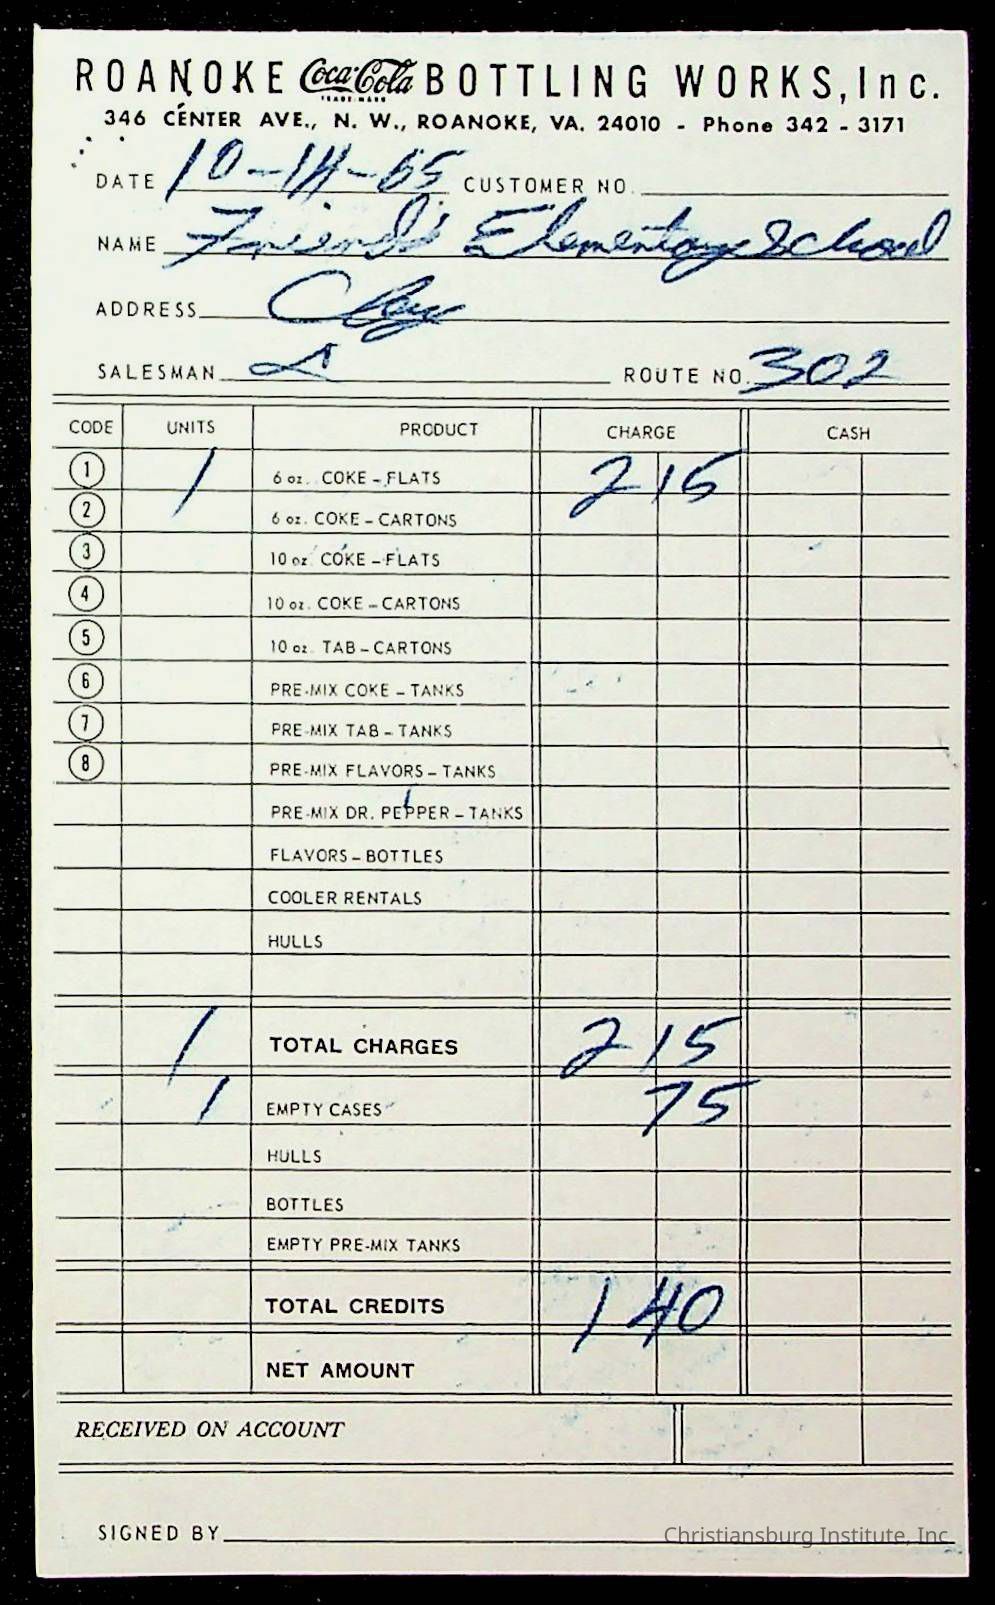 ROANOKE Coca-Cola BOTTLING WORKS, Inc.
TRADE-MARK
346 CENTER AVE., N. W., ROANOKE, VA. 24010 - Phone 342 - 3171
DATE 10-14-65 CUSTOMER NO.
NAME Friends Elementary School
ADDRESS Clay
SALESMAN
ROUTE NO. 302
CODE UNITS PRODUCT CHARGE CASH
1 1 6 oz. COKE - FLATS 2 15
2 6 oz. COKE - CARTONS
3 10 oz. COKE - FLATS
4 10 oz. COKE - CARTONS
5 10 oz. TAB - CARTONS
6 PRE-MIX COKE - TANKS
7 PRE-MIX TAB - TANKS
8 PRE-MIX FLAVORS - TANKS
PRE-MIX DR. PEPPER - TANKS
FLAVORS - BOTTLES
COOLER RENTALS
HULLS
1 TOTAL CHARGES 2 15
1 EMPTY CASES 75
HULLS
BOTTLES
EMPTY PRE-MIX TANKS
TOTAL CREDITS 1 40
NET AMOUNT
RECEIVED ON ACCOUNT
SIGNED BY
Christiansburg Institute, Inc